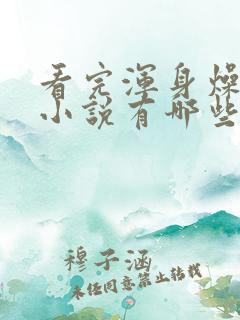 看完浑身燥
小说有哪些
穆子涵
未经同意禁止转载